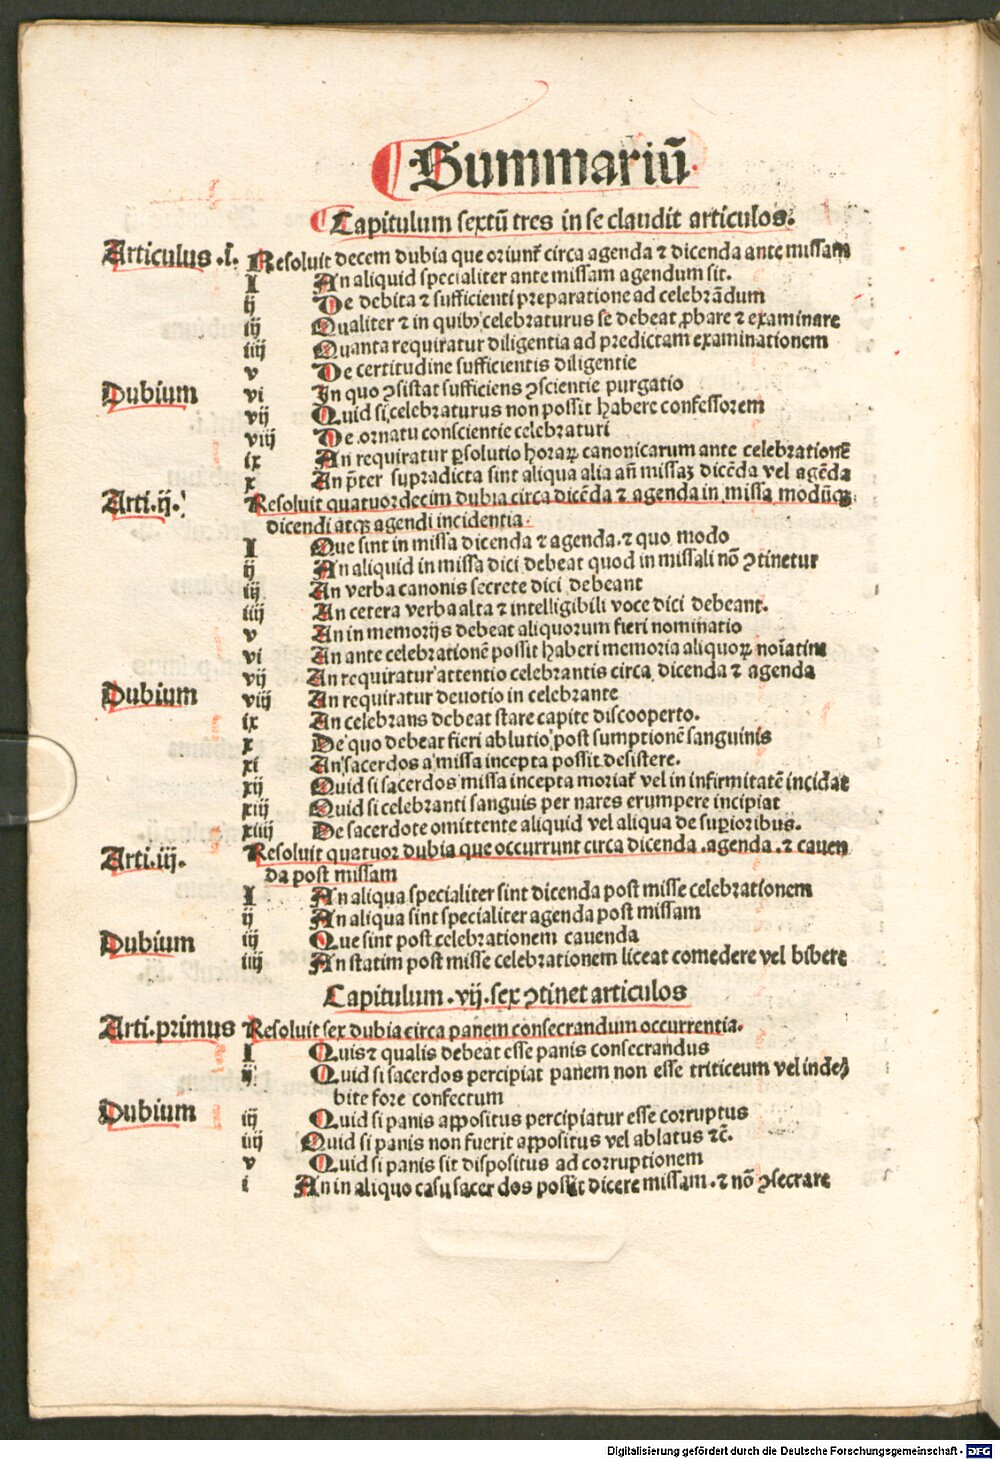 Summariū
Capitulum sextū tres in se claudit articulos.
Articulus .i. Resoluit decem dubia que oriunt̄ circa agenda ⁊ dicenda ante missam
I An aliquid specialiter ante missam agendum sit.
ij De debita ⁊ sufficienti preparatione ad celebrādum
iij Qualiter ⁊ in quibꝫ celebraturus se debeat ꝓbare ⁊ examinare
iiij Quanta requiratur diligentia ad predictam examinationem
v De certitudine sufficientis diligentie
Dubium vi In quo ꝯsistat sufficiens ꝯscientie purgatio
vij Quid si celebraturus non possit habere confessorem
viij De ornatu conscientie celebraturi
ix An requiratur ꝑsolutio horaꝝ canonicarum ante celebrationē
x An p̄ter supradicta sint aliqua alia añ missaꝫ dicēda vel agēda
Arti.ij. Resoluit quatuordecim dubia circa dicēda ⁊ agenda in missa modūqꝫ
dicendi atqꝫ agendi incidentia.
I Que sint in missa dicenda ⁊ agenda. ⁊ quo modo
ij An aliquid in missa dici debeat quod in missali nō ꝯtinetur
iij An verba canonis secrete dici debeant
iiij An cetera verba alta ⁊ intelligibili voce dici debeant.
v An in memorijs debeat aliquorum fieri nominatio
vi An ante celebrationē possit haberi memoria aliquoꝝ noīatim
vij An requiratur attentio celebrantis circa dicenda ⁊ agenda
Dubium viij An requiratur deuotio in celebrante
ix An celebrans debeat stare capite discooperto.
x De quo debeat fieri ablutio post sumptionē sanguinis
xi An sacerdos a missa incepta possit desistere.
xij Quid si sacerdos missa incepta moriat̄ vel in infirmitatē incidat
xiij Quid si celebranti sanguis per nares erumpere incipiat
xiiij De sacerdote omittente aliquid vel aliqua de suꝑioribus.
Arti.iij. Resoluit quatuor dubia que occurrunt circa dicenda .agenda .⁊ cauen
da post missam
I An aliqua specialiter sint dicenda post misse celebrationem
ij An aliqua sint specialiter agenda post missam
Dubium iij Que sint post celebrationem cauenda
iiij An statim post misse celebrationem liceat comedere vel bibere
Capitulum .vij. sex ꝯtinet articulos
Arti.primus Resoluit sex dubia circa panem consecrandum occurrentia.
I Quis ⁊ qualis debeat esse panis consecrandus
ij Quid si sacerdos percipiat panem non esse triticeum vel inde⸗
bite fore confectum
Dubium iij Quid si panis appositus percipiatur esse corruptus
iiij Quid si panis non fuerit appositus vel ablatus ⁊c̄.
v Quid si panis sit dispositus ad corruptionem
i An in aliquo casu sacerdos possit dicere missam .⁊ nō ꝯsecrare
Digitalisierung gefördert durch die Deutsche Forschungsgemeinschaft - DFG